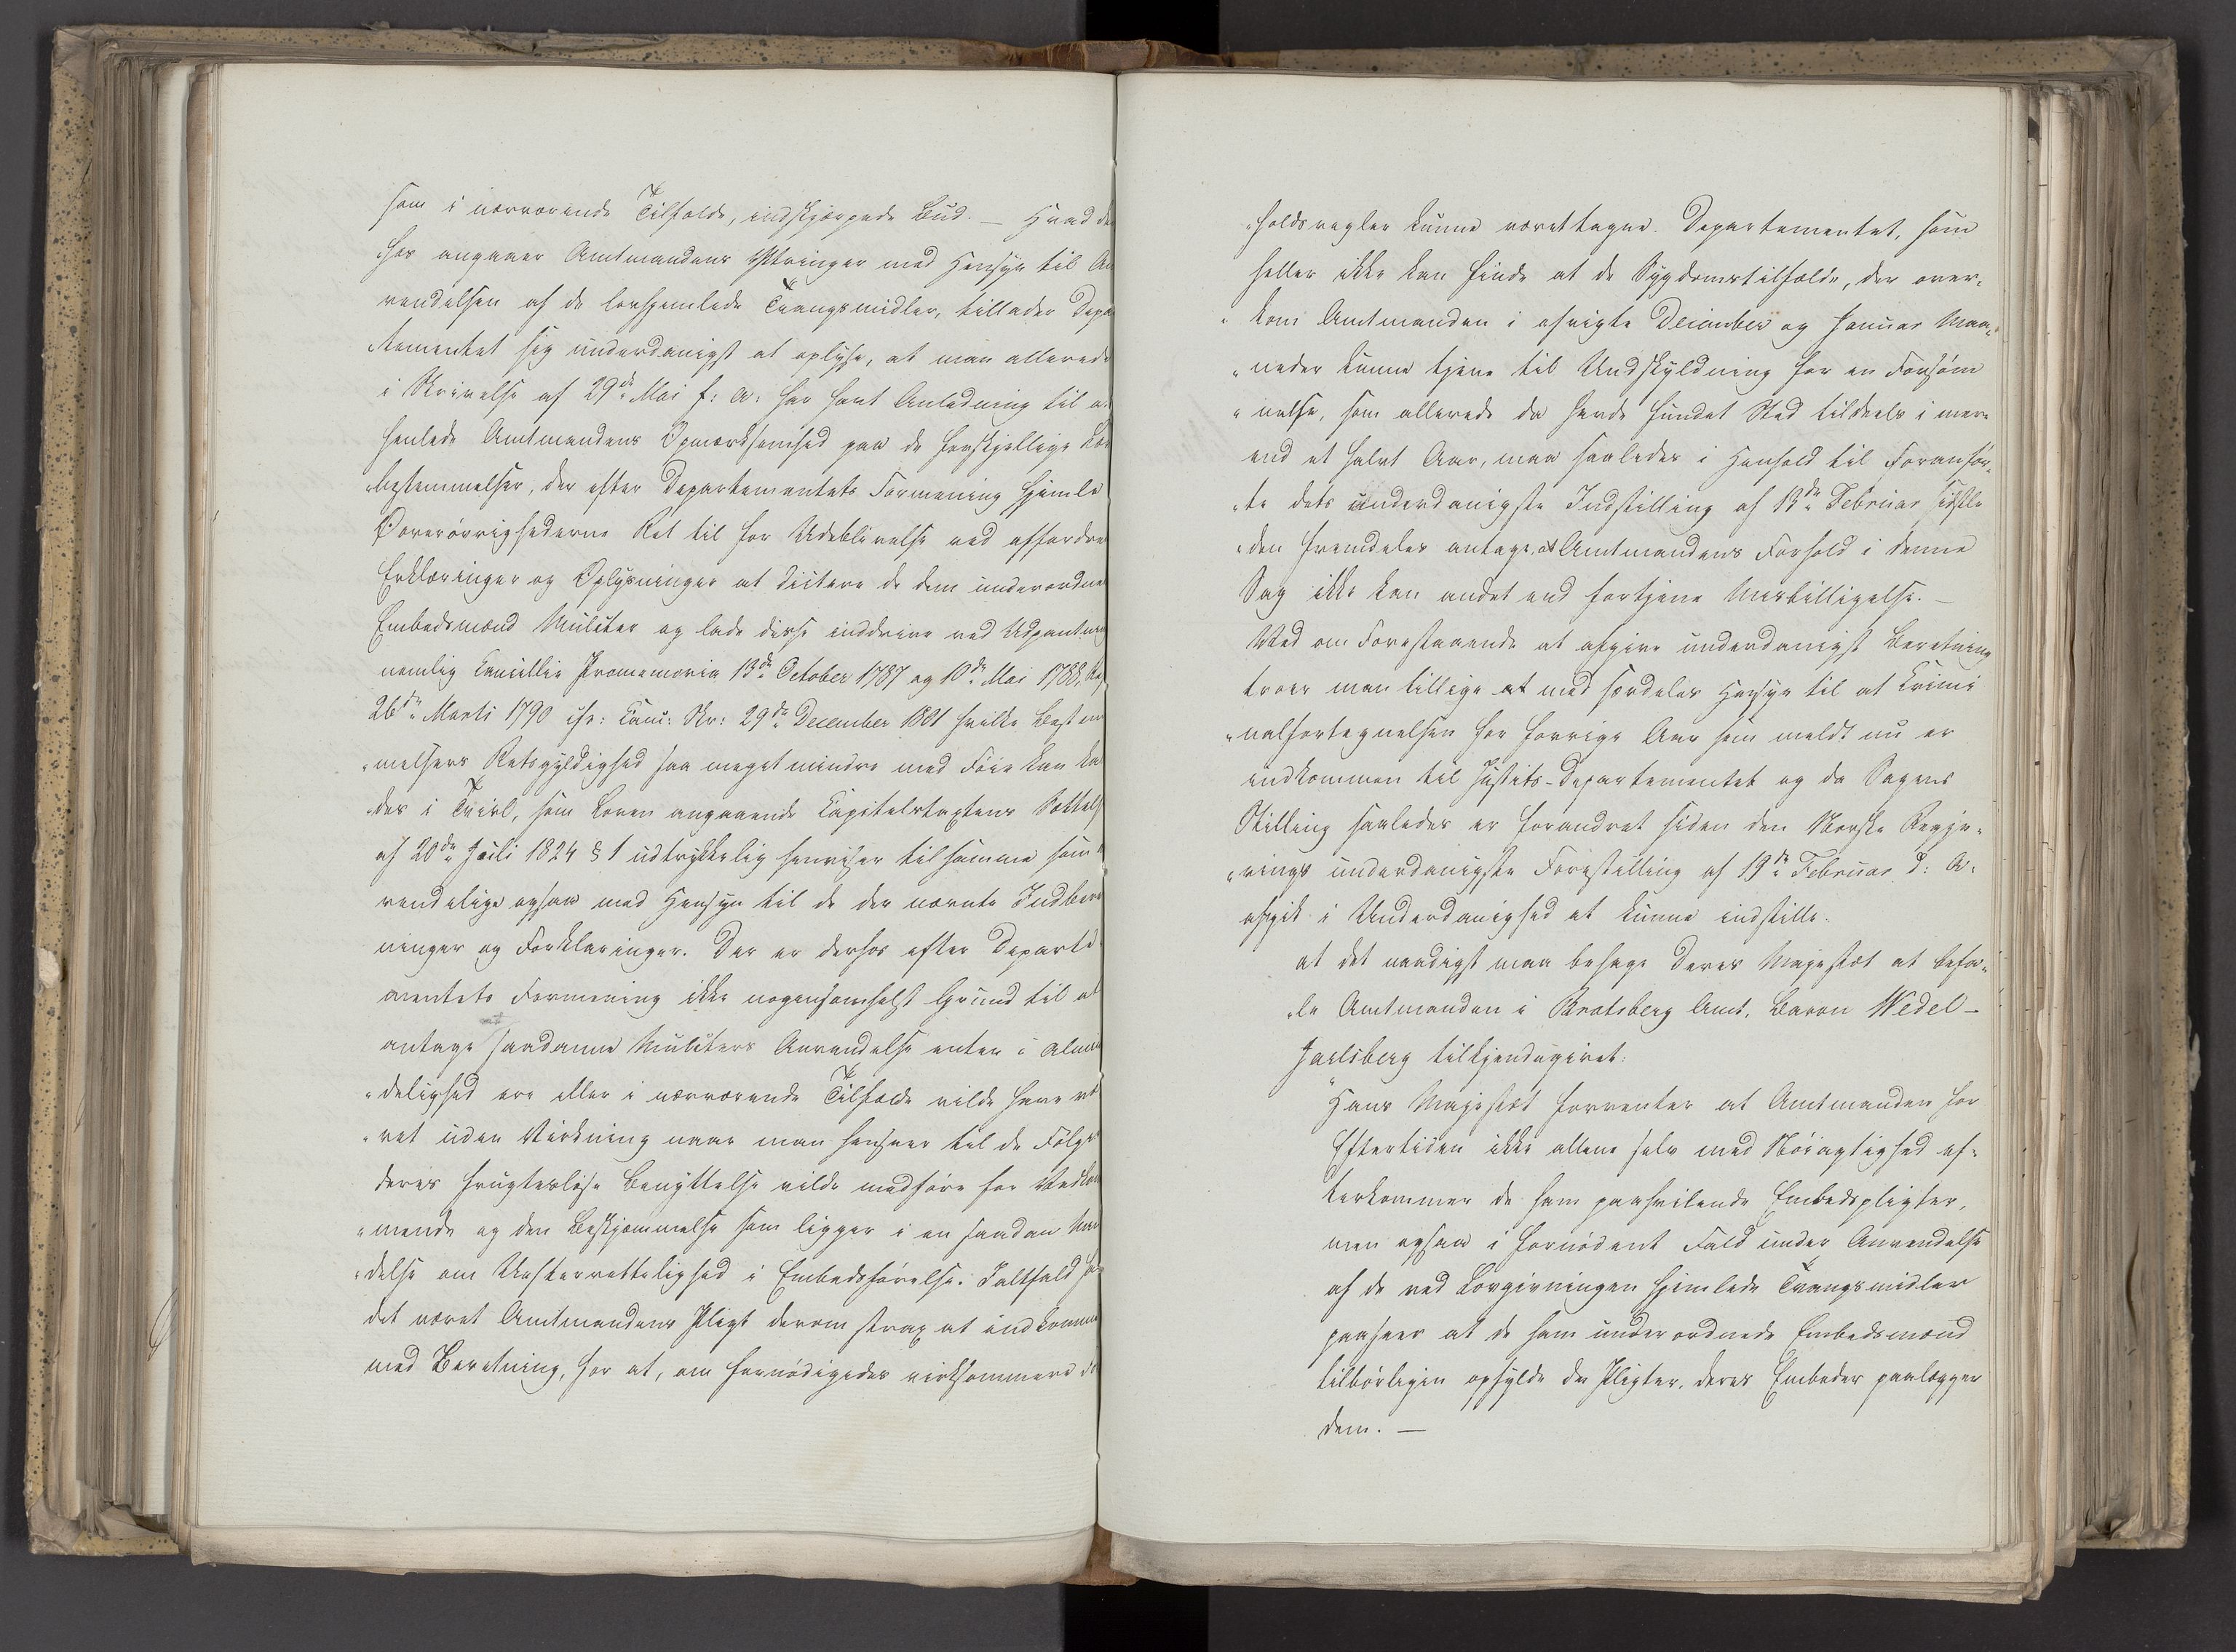 som i nærværende Tilfælde, indskjærpede Bud. — Hvad de
hos angaaer Amtmandens Yttringer med Hensyn til An
vendelsen af de lovhjemlede Tvangsmidler, tillader Depa
tementet sig underdanigst at oplyse, at man allerede
i Skrivelse af 29de Mai f: A: har havt Anledning til at
henlede Amtmandens Opmærksomhed paa de forskjellige Lov
bestemmelser, der efter Departementets Formening hjemle
Overøvrighederne Ret til for Udeblivelse ved affordrede
Erklæringer og Oplysninger at dictere de dem underordnede
Embedsmænd Mulcter og lade disse inddrive ved Udpantning
nemlig Cancellie Promemoria 13de October 1787 og 10de Mai 1788,
26de Marts 1790 cfr: Canc: Skr: 29de December 1801 hvilke Bestem
"melsers Retsgyldighed saa meget mindre med Føie kan ka
des i Tvivl, som Loven angaaende Capitelstaxtens Sættelse
af 20de Juli 1824 § 1 udtrykkelig henviser til samme som
vendelige ogsaa med Hensyn til de der nævnte Indberet
ninger og Forklaringer. Der er derhos efter Departe
mentets Formening ikke nogensomhelst Grund til at
antage saadanne Mulcters Anvendelse enten i Almin
"delighed ere eller i nærværende Tilfælde vilde have væ
"ret uden Virkning naar man henseer til de Følger
deres frugtesløse Benyttelse vilde medføre for Vedkom
"mende og den Beskjæmmelse som ligger i en saadan
"delse om Uefterrettelighed i Embedsførelse. Ialtfald ha
det været Amtmandens Pligt derom strax at indkomme
med Beretning, for at, om fornødigedes virksommere
"holdsregler kunne været tagne. Departementet, som
heller ikke kan finde at de Sygdomstilfælde, der over-
"kom Amtmanden i afvigte December og Januar Maa-
"neder kunne tjene til Undskyldning for en Forsøm
"melse, som allerede da havde fundet Sted tildeels i mere
end et halvt Aar, maa saaledes i Henhold til Foranfør-
"te dets underdanigste Indstilling af 13de Februar sidstle
"den fremdeles antage, at Amtmandens Forhold i denne
Sag ikke kan andet end fortjene Misbilligelse. —
Ved om Forestaaende at afgive underdanigst Beretning
troer man tillige at med særdeles Hensyn til at Crimi
"nalfortegnelsen for forrige Aar som meldt nu er
indkommen til Justits-Departementet og da Sagens
Stilling saaledes er forandret siden den Norske Regje-
"rings underdanigste Forestilling af 19de Februar d: A:
afgik i Underdanighed at kunne indstille.
at det naadigst maa behage Deres Majestæt at befa-
"le Amtmanden i Bratsberg Amt, Baron Wedel-
Jarlsberg tilkjendegivet:
"Hans Majestæt forventer at Amtmanden for
Eftertiden ikke allene selv med Nøiagtighed ef-
terkommer de ham paahvilende Embedspligter,
men ogsaa i fornødent Fald under Anvendelse
af de ved Lovgivningen hjemlede Tvangsmidler
paaseer at de ham underordnede Embedsmænd
tilbørligen opfylde de Pligter, deres Embeder paalægger
dem. —